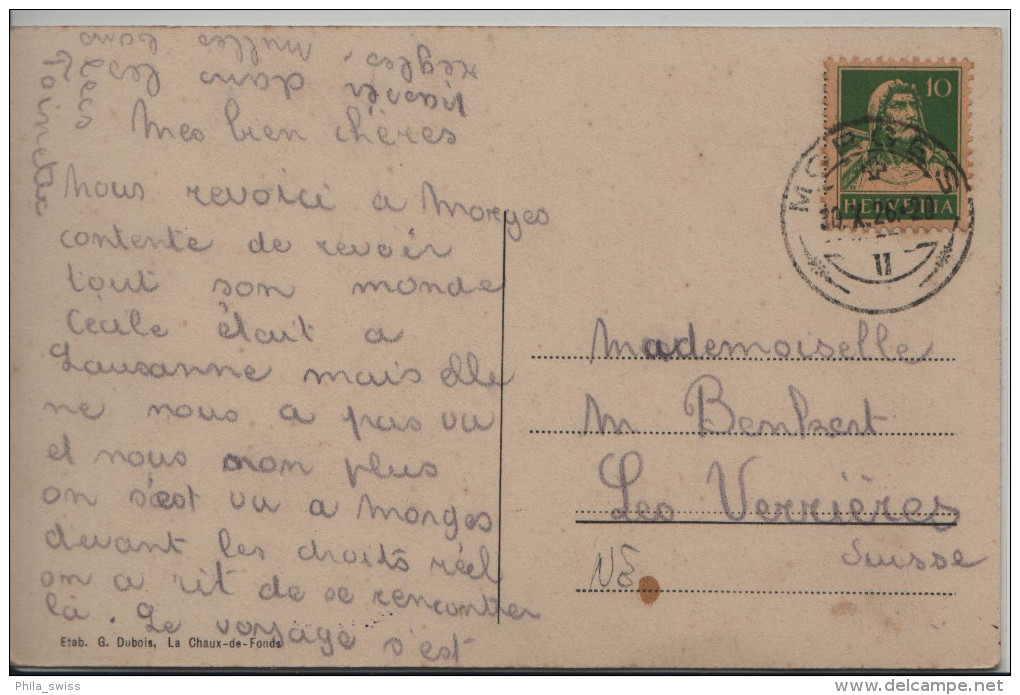 Mes bien chères
Nous revoici a Morges
contente de revoir
tout son monde
Cécile était a
Lausanne mais elle
ne nous a pas vu
et nous non plus
on s'est vu a Morges
devant les droits réel
on a rit de se rencontrer
là. Le voyage s'est
dans les
règles, milles bons
10
HELVETIA
MORGES
30.X.26.-20
II
Mademoiselle
M Benkert
Les Verrières
Suisse
NE
Etab. G. Dubois, La Chaux-de-Fonds
Phila_swiss
www.delcampe.net